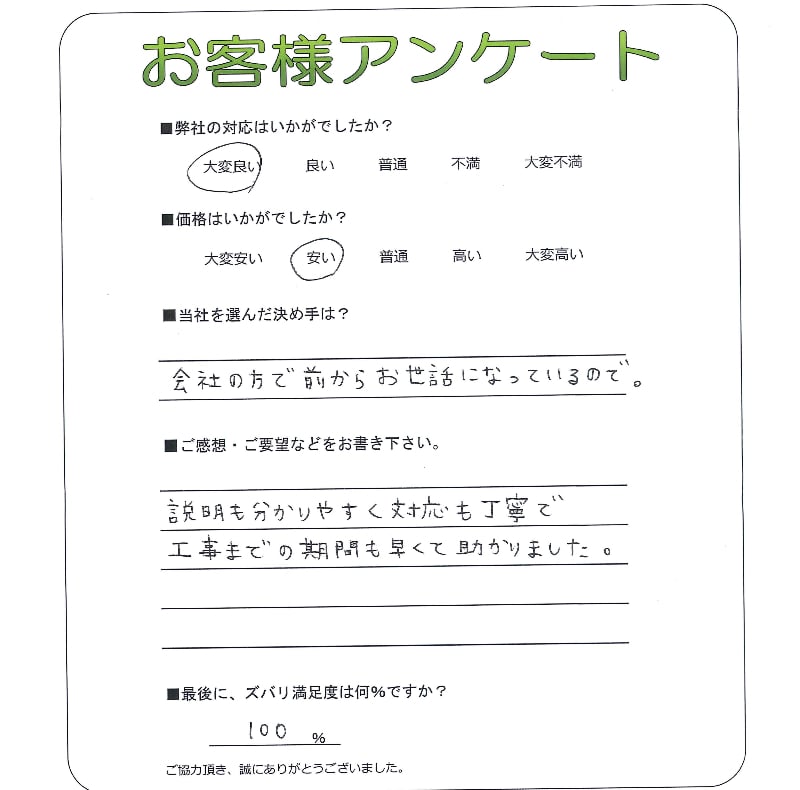 お客様アンケート
■弊社の対応はいかがでしたか?
大変良い 良い 普通 不満 大変不満
■価格はいかがでしたか?
大変安い 安い 普通 高い 大変高い
■当社を選んだ決め手は?
会社の方で前からお世話になっているので。
■ご感想・ご要望などをお書き下さい。
説明も分かりやすく対応も丁寧で
工事までの期間も早くて助かりました。
■最後に、ズバリ満足度は何%ですか?
100 %
ご協力頂き、誠にありがとうございました。